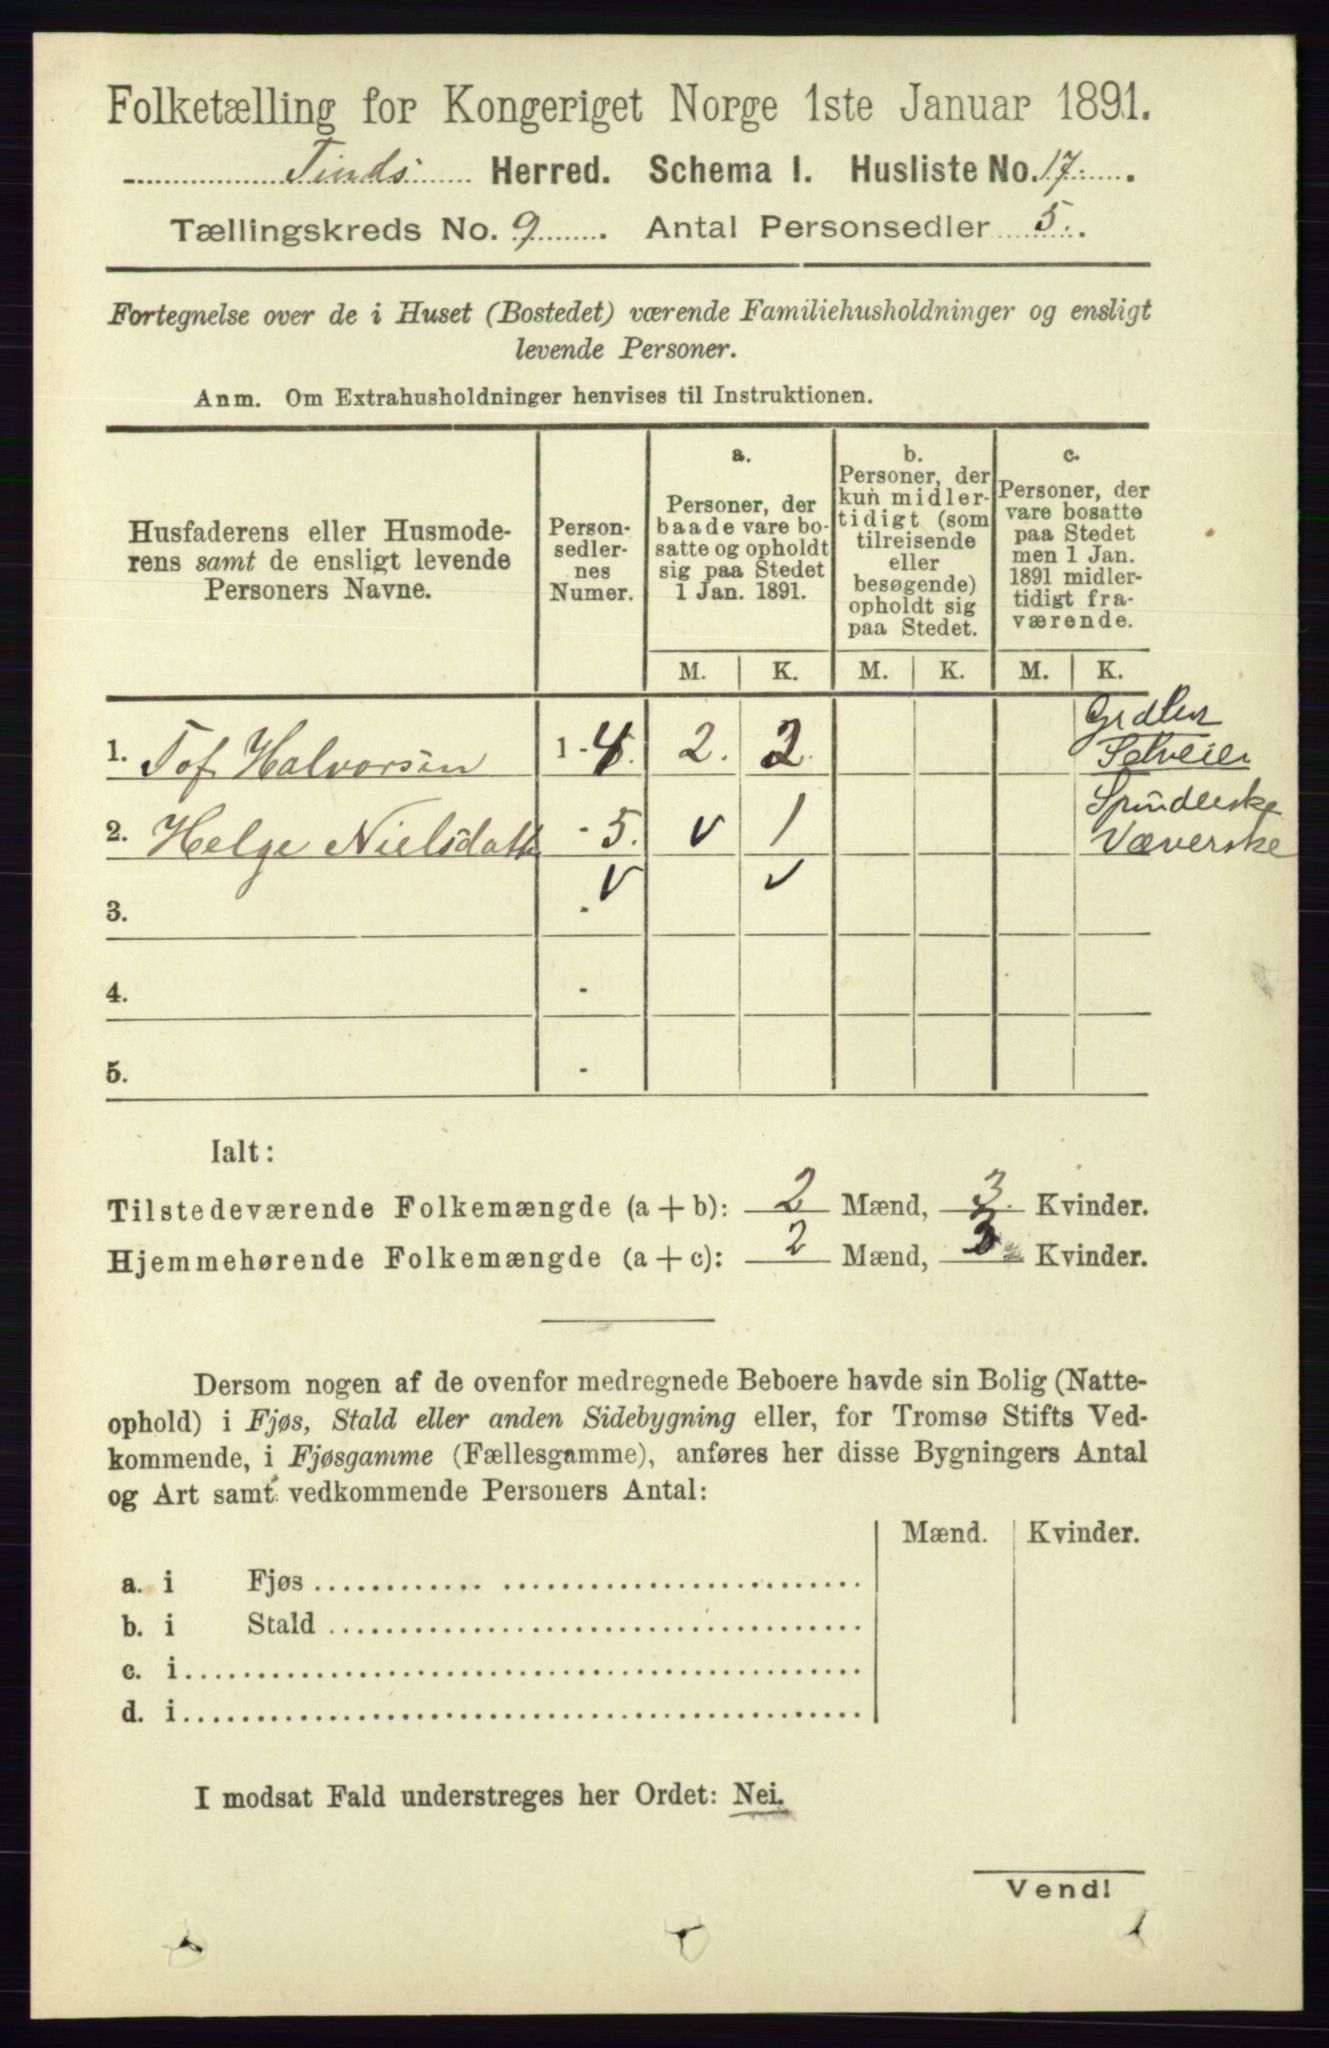 Folketælling for Kongeriget Norge 1ste Januar 1891.
Tinds Herred. Schema I. Husliste No. 17.
Tællingskreds No. 9. Antal Personsedler 5.
Fortegnelse over de i Huset (Bostedet) værende Familiehusholdninger og ensligt
levende Personer.
Anm. Om Extrahusholdninger henvises til Instruktionen.
Husfaderens eller Husmode-
rens samt de ensligt levende
Personers Navne.
Person-
sedler-
nes
Numer.
a.
Personer, der
baade vare bo-
satte og opholdt
sig paa Stedet
1 Jan. 1891.
b.
Personer, der
kun midler-
tidigt (som
tilreisende
eller
besøgende)
opholdt sig
paa Stedet.
c.
Personer, der
vare bosatte
paa Stedet
men 1 Jan.
1891 midler-
tidigt fra-
værende.
M. K. M. K. M. K.
1. Tof Halvorsen 1 - 4. 2. 2 Selveier
2. Helge Nielsdatt - 5. v 1 Spinderske
Væverske
v v
3. -
4. -
5. -
Ialt:
Tilstedeværende Folkemængde (a + b): 2 Mænd, 3. Kvinder.
Hjemmehørende Folkemængde (a + c): 2 Mænd, 3 Kvinder.
Dersom nogen af de ovenfor medregnede Beboere havde sin Bolig (Natte-
ophold) i Fjøs, Stald eller anden Sidebygning eller, for Tromsø Stifts Ved-
kommende, i Fjøsgamme (Fællesgamme), anføres her disse Bygningers Antal
og Art samt vedkommende Personers Antal:
Mænd. Kvinder.
a. i Fjøs
b. i Stald
c. i
d. i
I modsat Fald understreges her Ordet: Nei.
Vend!